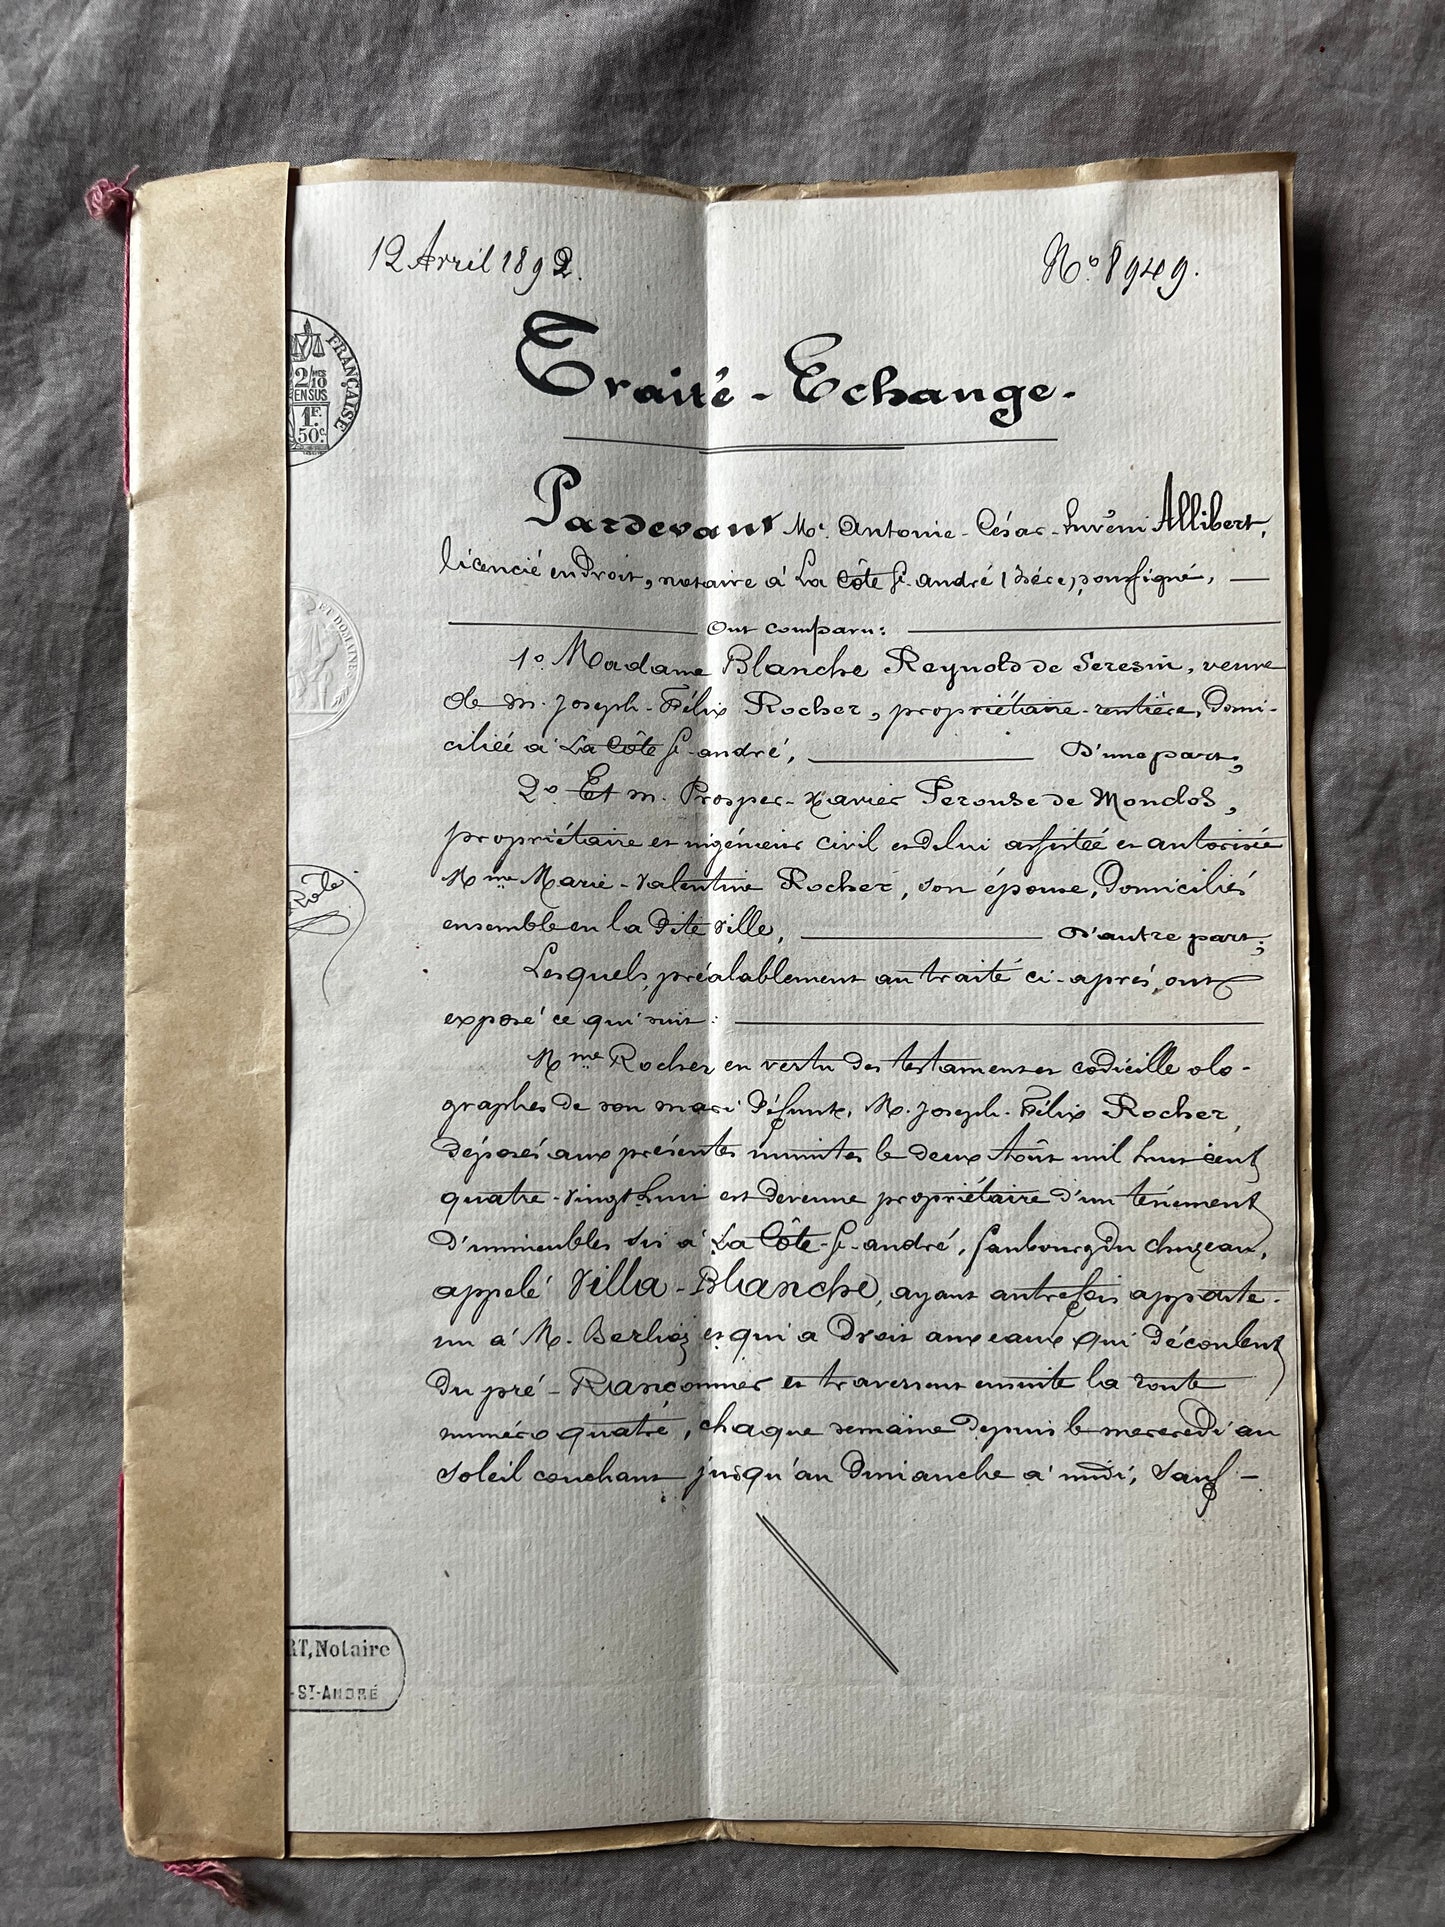 12 Avril 1892.
N° 8949.
FRANÇAISE
2/10
EN SUS
1F.
50c.
Traité - Echange.
Pardevant Me. Antonie - César - Allibert,
licencié en Droit, notaire à La Côte St. andré (Isère), soussigné,
ET DOMAINE
Ont comparu :
1° Madame Blanche Reynold de Seresin, veuve
de m. Joseph - Félix Rocher, propriétaire - rentière, Domi-
ciliée à La Côte St. andré, D'une part;
2° Et m. Prosper - Xavier Perouse de Monclos,
propriétaire et ingénieur civil et de lui assistée et autorisée
Mme Marie - Valentine Rocher, son épouse, Domiciliés
ensemble en la Dite ville, D'autre part;
Lesquels, préalablement au traité ci - après, ont
exposé ce qui suit :
Mme Rocher en vertu des testament et codicille olo-
graphes de son mari Défunt, M. Joseph - Félix Rocher,
déposés aux présentes minutes le deux Août mil huit cent
quatre - vingt huit est devenue propriétaire d'un tènement
D'immeubles sis à La Côte - St - andré, faubourg Du chuzeau,
appelé Villa - Blanche, ayant autrefois apparte-
nu à M. Berlioz et qui a Droit aux eaux qui Découlent
Du pré - Rançonnier et traversent ensuite la route
numéro quatre, chaque semaine Depuis le mercredi au
soleil couchant jusqu'au Dimanche à midi, Sauf -
RT, Notaire
-ST-ANDRÉ